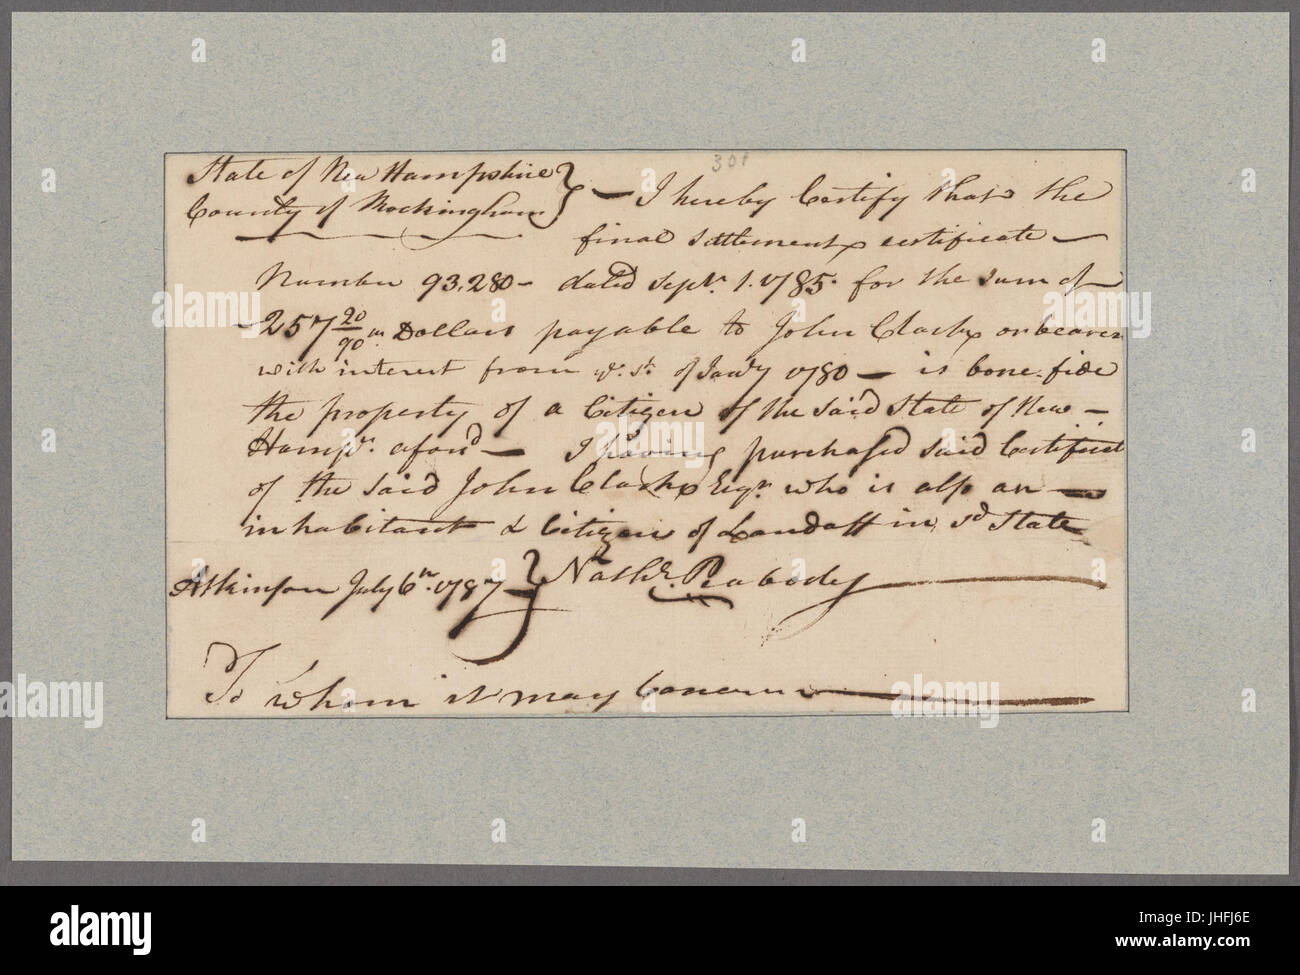 301
State of New Hampshire
County of Rockingham } — I hereby Certify that the
final settlement certificate —
Number 93.280 — dated Sept.r 1. 1785. for the sum of
257 20/90 Dollars payable to John Clark or bearer
with interest from ye. 1st. of Jany 1780 — is bone fide
the property of a Citizen of the said State of New —
Hampr. afor'd — I having purchased said Certificat
of the said John Clark Esqr. who is also an —
inhabitant & Citizen of Landaff in sd State
Atkinson July 6th. 1787 } Nathl. Peabody
To whom it may Concern
alamy stock photo
alamy stock photo
alamy stock photo
alamy
Image ID: JHFJ6E
www.alamy.com